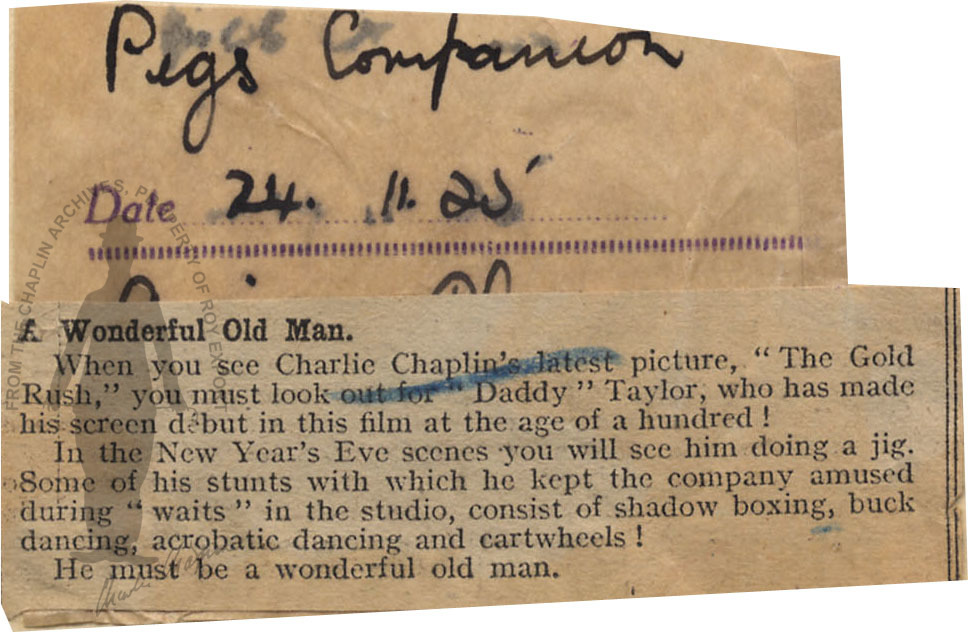 Pegs Companion
Date 24. 11. 25
A Wonderful Old Man.
When you see Charlie Chaplin's latest picture, "The Gold
Rush," you must look out for "Daddy" Taylor, who has made
his screen début in this film at the age of a hundred!
In the New Year's Eve scenes you will see him doing a jig.
Some of his stunts with which he kept the company amused
during "waits" in the studio, consist of shadow boxing, buck
dancing, acrobatic dancing and cartwheels!
He must be a wonderful old man.
FROM THE CHAPLIN ARCHIVES, PROPERTY OF ROY EXPORT